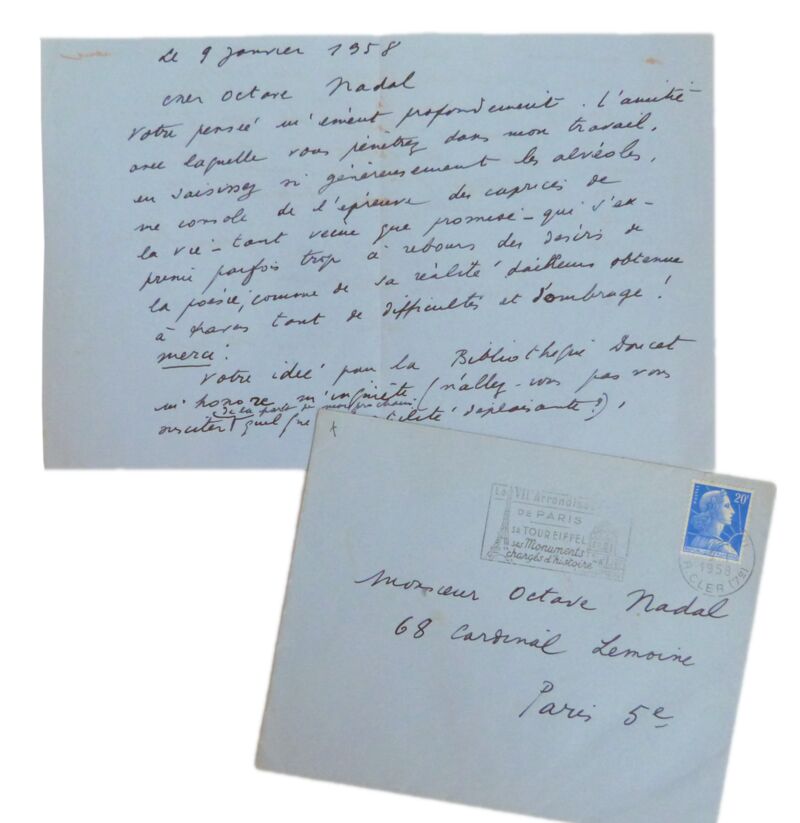 Le 9 Janvier 1958
cher Octave Nadal
Votre pensée m'émeut profondément. L'amitié
avec laquelle vous pénétrez dans mon travail,
en saisissez si généreusement les alvéoles,
me console de l'épreuve des caprices de
la vie - tant vécue que promise - qui s'ex-
prime parfois trop à rebours des désirs de
la poésie, comme de sa réalité d'ailleurs obtenue
à travers tant de difficultés et d'ombrage!
merci!
Votre idée pour la Bibliothèque Doucet
m'honore m'inquiète (n'allez-vous pas vous
de la part de mon prochain
susciter quelque déplaisante?),
Le VIIe Arrondiss
DE PARIS
sa TOUR EIFFEL
ses Monuments
chargés d'histoire
20F
1958
R. CLER (7e)
Monsieur Octave Nadal
68 Cardinal Lemoine
Paris 5e